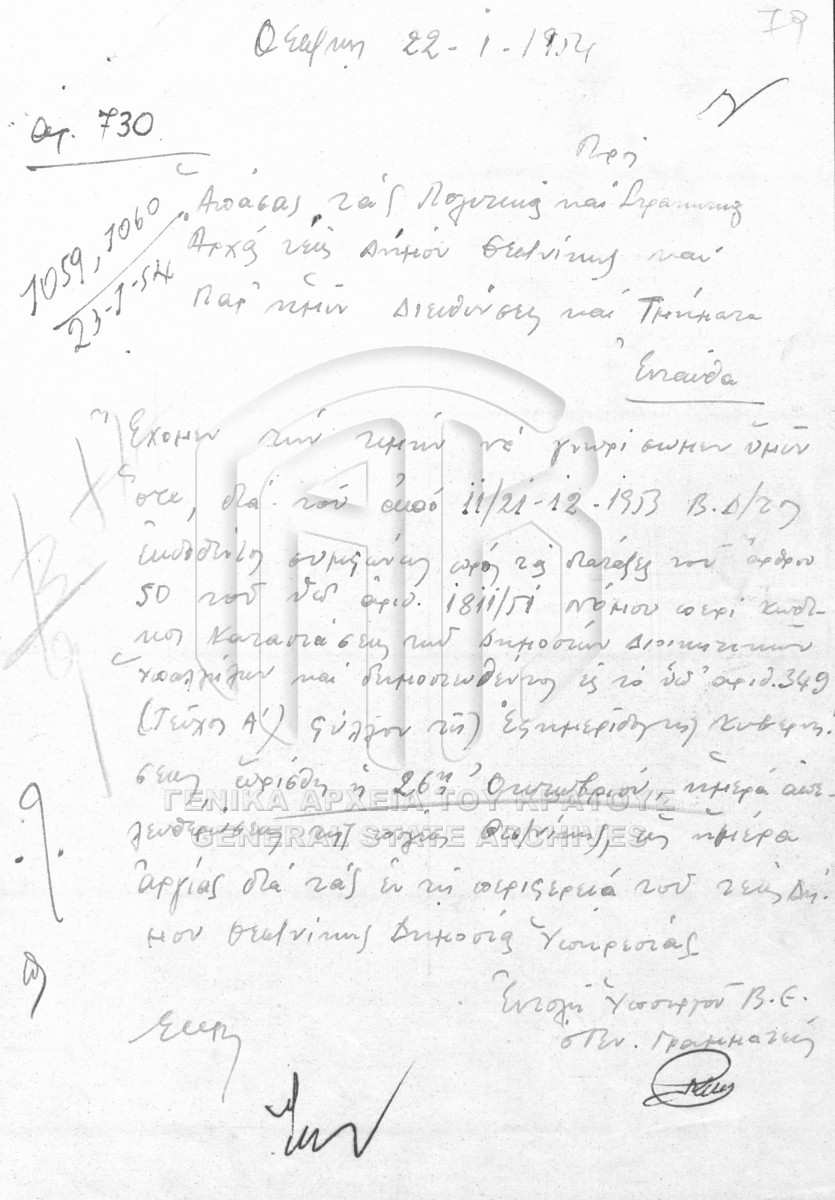 Θεσ/νίκη 22-1-1954
79
αρ. 730
Πρὸς
1059, 1060
23-1-54
Ἁπάσας τάς Πολιτικάς καί Στρατιωτικάς
Ἀρχάς τέως Δήμου Θεσ/νίκης καί
Παρ' ἡμῖν Διευθύνσεις καί Τμήματα
Ἐνταῦθα
Ἔχομεν τήν τιμήν νά γνωρίσωμεν ὑμῖν
ὅτι, διά τοῦ ἀπό 11/21-12-1953 Β.Δ/τος
ἐκδοθέντος συμφώνως πρός τάς διατάξεις τοῦ ἄρθρου
50 τοῦ ὑπ' ἀριθ. 1811/51 Νόμου περί Κώδι-
κος Καταστάσεως τῶν Δημοσίων Διοικητικῶν
Ὑπαλλήλων καί δημοσιευθέντος εἰς τό ὑπ' ἀριθ. 349
(Τεῦχος Α') φύλλον τῆς Ἐφημερίδος τῆς Κυβερνή-
σεως, ὡρίσθη ἡ 26η Ὀκτωβρίου, ἡμέρα ἀπε-
λευθερώσεως τῆς πόλεως Θεσ/νίκης, ὡς ἡμέρα
ἀργίας διά τάς ἐν τῇ περιφερείᾳ τοῦ τέως Δή-
μου Θεσ/νίκης Δημοσίας Ὑπηρεσίας.
Ἐντολῇ Ὑπουργοῦ Β.Ε.
ὁ Γεν. Γραμματεύς
ΓΕΝΙΚΑ ΑΡΧΕΙΑ ΤΟΥ ΚΡΑΤΟΥΣ
GENERAL STATE ARCHIVES